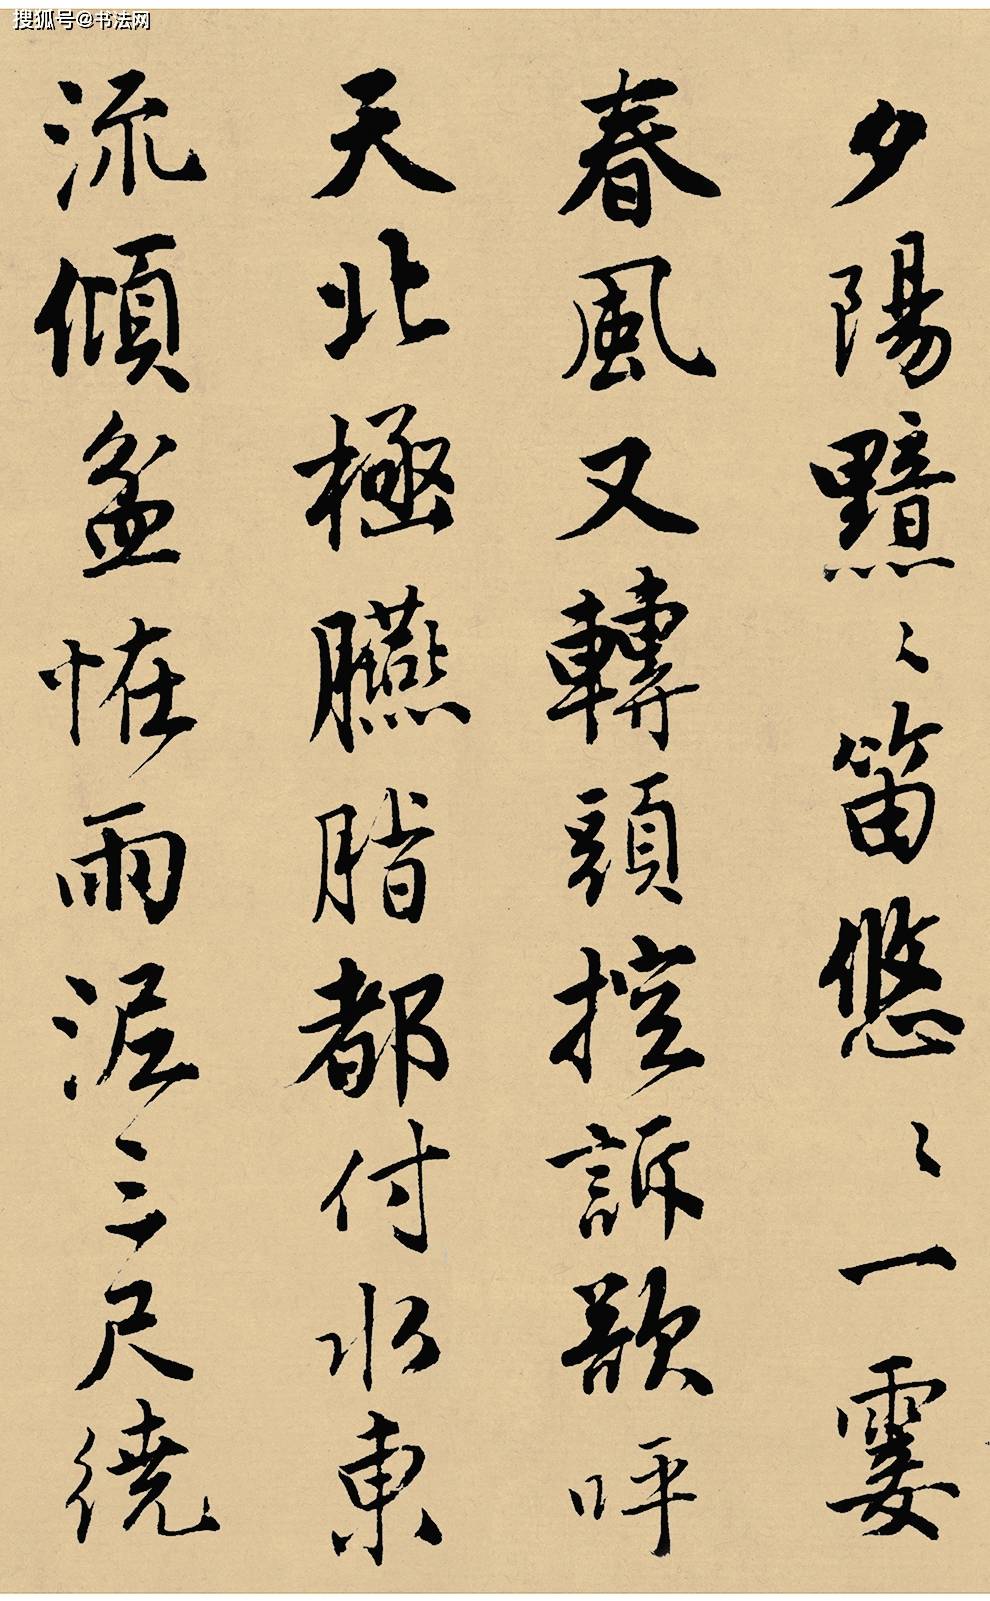 搜狐号@书法网
夕陽黯々笛悠々一霎
春風又轉頭控訴欲呼
天北極臙脂都付水東
流傾盆恠雨泥三尺繞